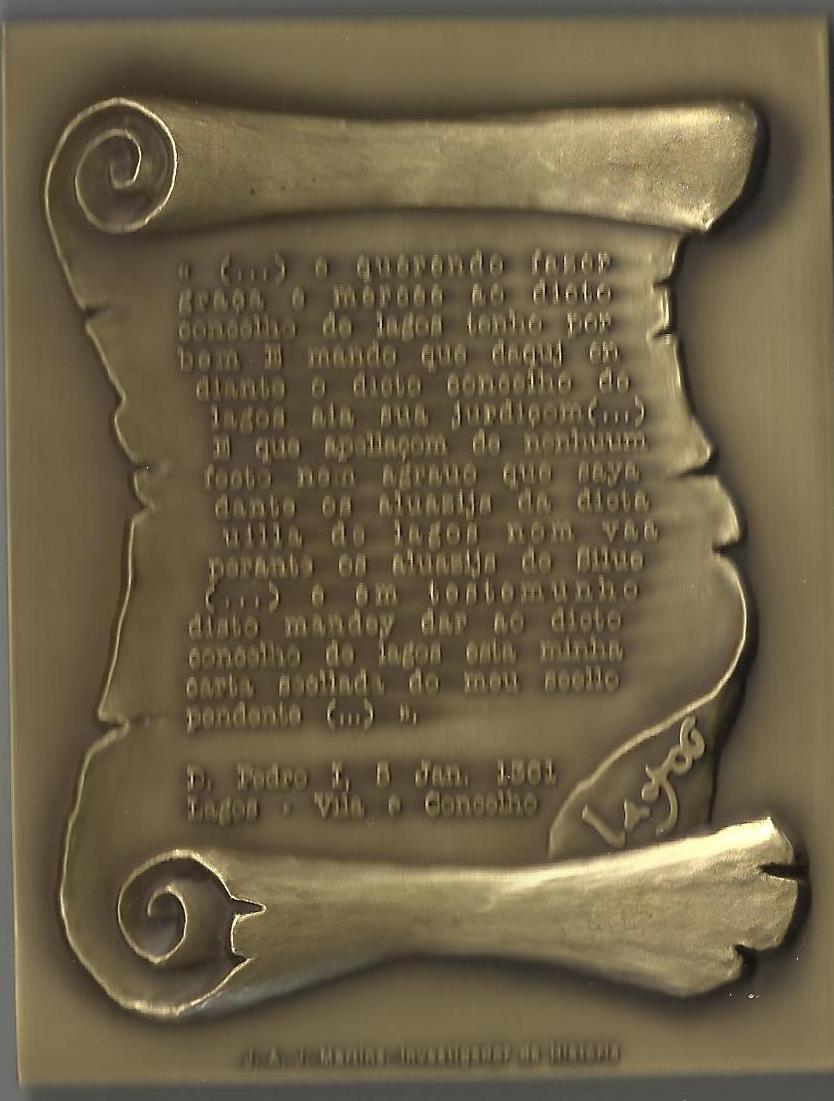 « (...) e querendo fazer
graça e merçee ao dicto
concelho de lagos tenho por
bem E mando que daquj en
diante o dicto concelho de
lagos aia sua jurdiçom(...)
E que apellaçom de nenhuum
fecto nem agrauo que saya
dante os aluasijs da dicta
uilla de lagos nom vaa
perante os aluasijs de Silue
(...) e em testemunho
disto mandey dar ao dicto
concelho de lagos esta minha
carta seellada do meu seello
pendente (...) ».
D. Pedro I, Jan. 1361
Lagos - Vila e Concelho
Lagos
J. A. J. Martins Investigador de História